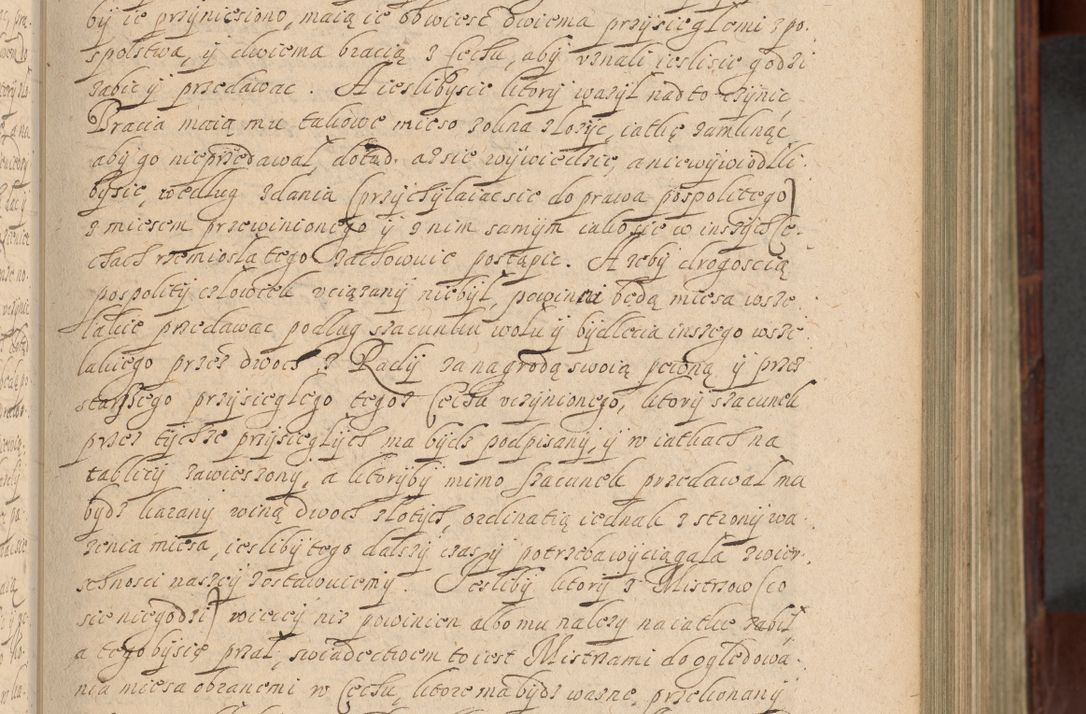 by ie przyniesiono, maią ie obwiesc dwiema przysięgłemi z po-
spolstwa, y dwiema bracią z Cechu, aby uznali iesli sie godzi
zabic y przedawac. A ieslibysie ktory ważył nad to czynic
Bracia maią mu takowe mieso zolna złożyc, iatkę zamknąc
aby go nieprzedawał, dotąd. aż sie wywiedzie, a niewywiodłli
bysie, według zdania (przychylaiac sie do prawa pospolitego)
z miesem przewinionego y z nim samym iako sie w inszych Ce-
chach rzemiosła tego zachowuie postąpic. A zeby drogoscią
pospolity człowiek uciązany niebył, powinni będą miesa wsze-
lakie przedawac podług szacunku wołu y bydlęcia inszego wsze
lakiego przez dwoch z Rady za nagrodą swoią pewną y przez
starszego przysięgłego tegoż Cechu uczynionego, ktory szacunek
przez tychze przysięgłych ma bydz podpisany, y w iatkach na
tablicy zawieszony, a ktoryby mimo szacunek przedawał ma
bydz karany winą dwoch złotych, ordinatią iednak z strony wa-
zenia miesa, iesliby tego dalszy czas y potrzeba wyciągała zwier-
zchnosci naszey zostawuiemy. Jesliby ktory z Mistrzow (co
sie niegodzi) wiecey niz powinien albo mu należy na iatkę zabił
a tegobysię przał, swiadectwem to iest Mistrzami do oględowa-
nia miesa obranemi w Cechu, ktore ma bydz wazne, przekonany